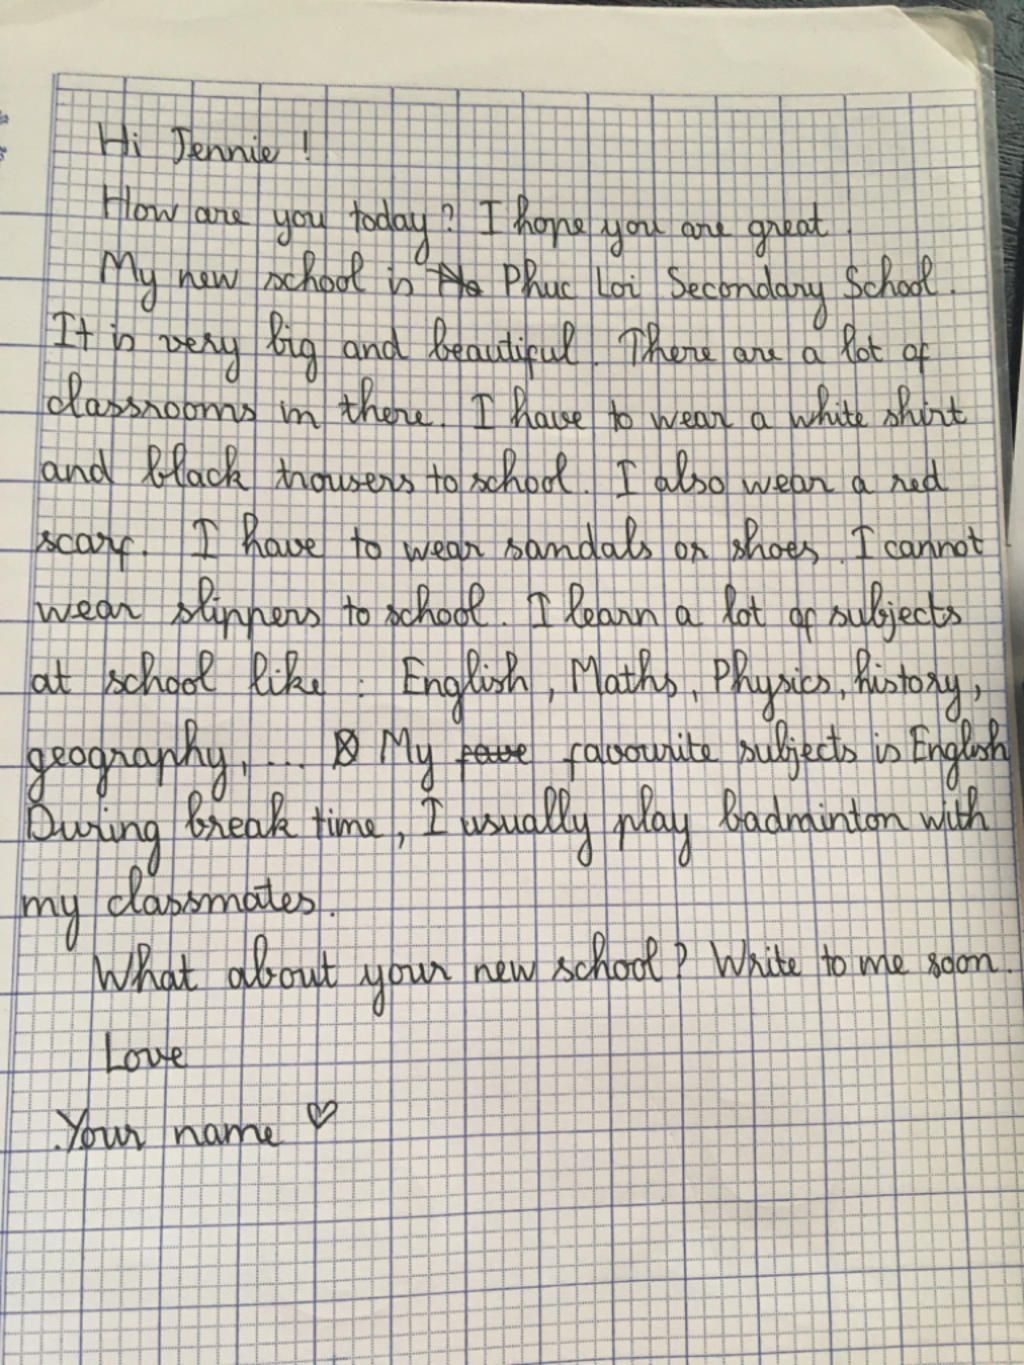 Hi Jennie !
How are you today? I hope you are great.
My new school is Phuc Loi Secondary School.
It is very big and beautiful. There are a lot of
classrooms in there. I have to wear a white shirt
and black trousers to school. I also wear a red
scarf. I have to wear sandals or shoes. I cannot
wear slippers to school. I learn a lot of subjects
at school like : English, Maths, Physics, history,
geography, ... My fave favourite subjects is English
During break time, I usually play badminton with
my classmates.
What about your new school? Write to me soon.
Love
Your name ♡